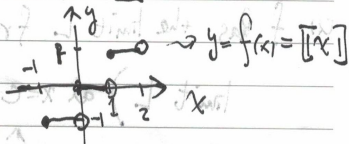 y
1 → y = f(x) = [[x]]
-1
1 2 x
-1